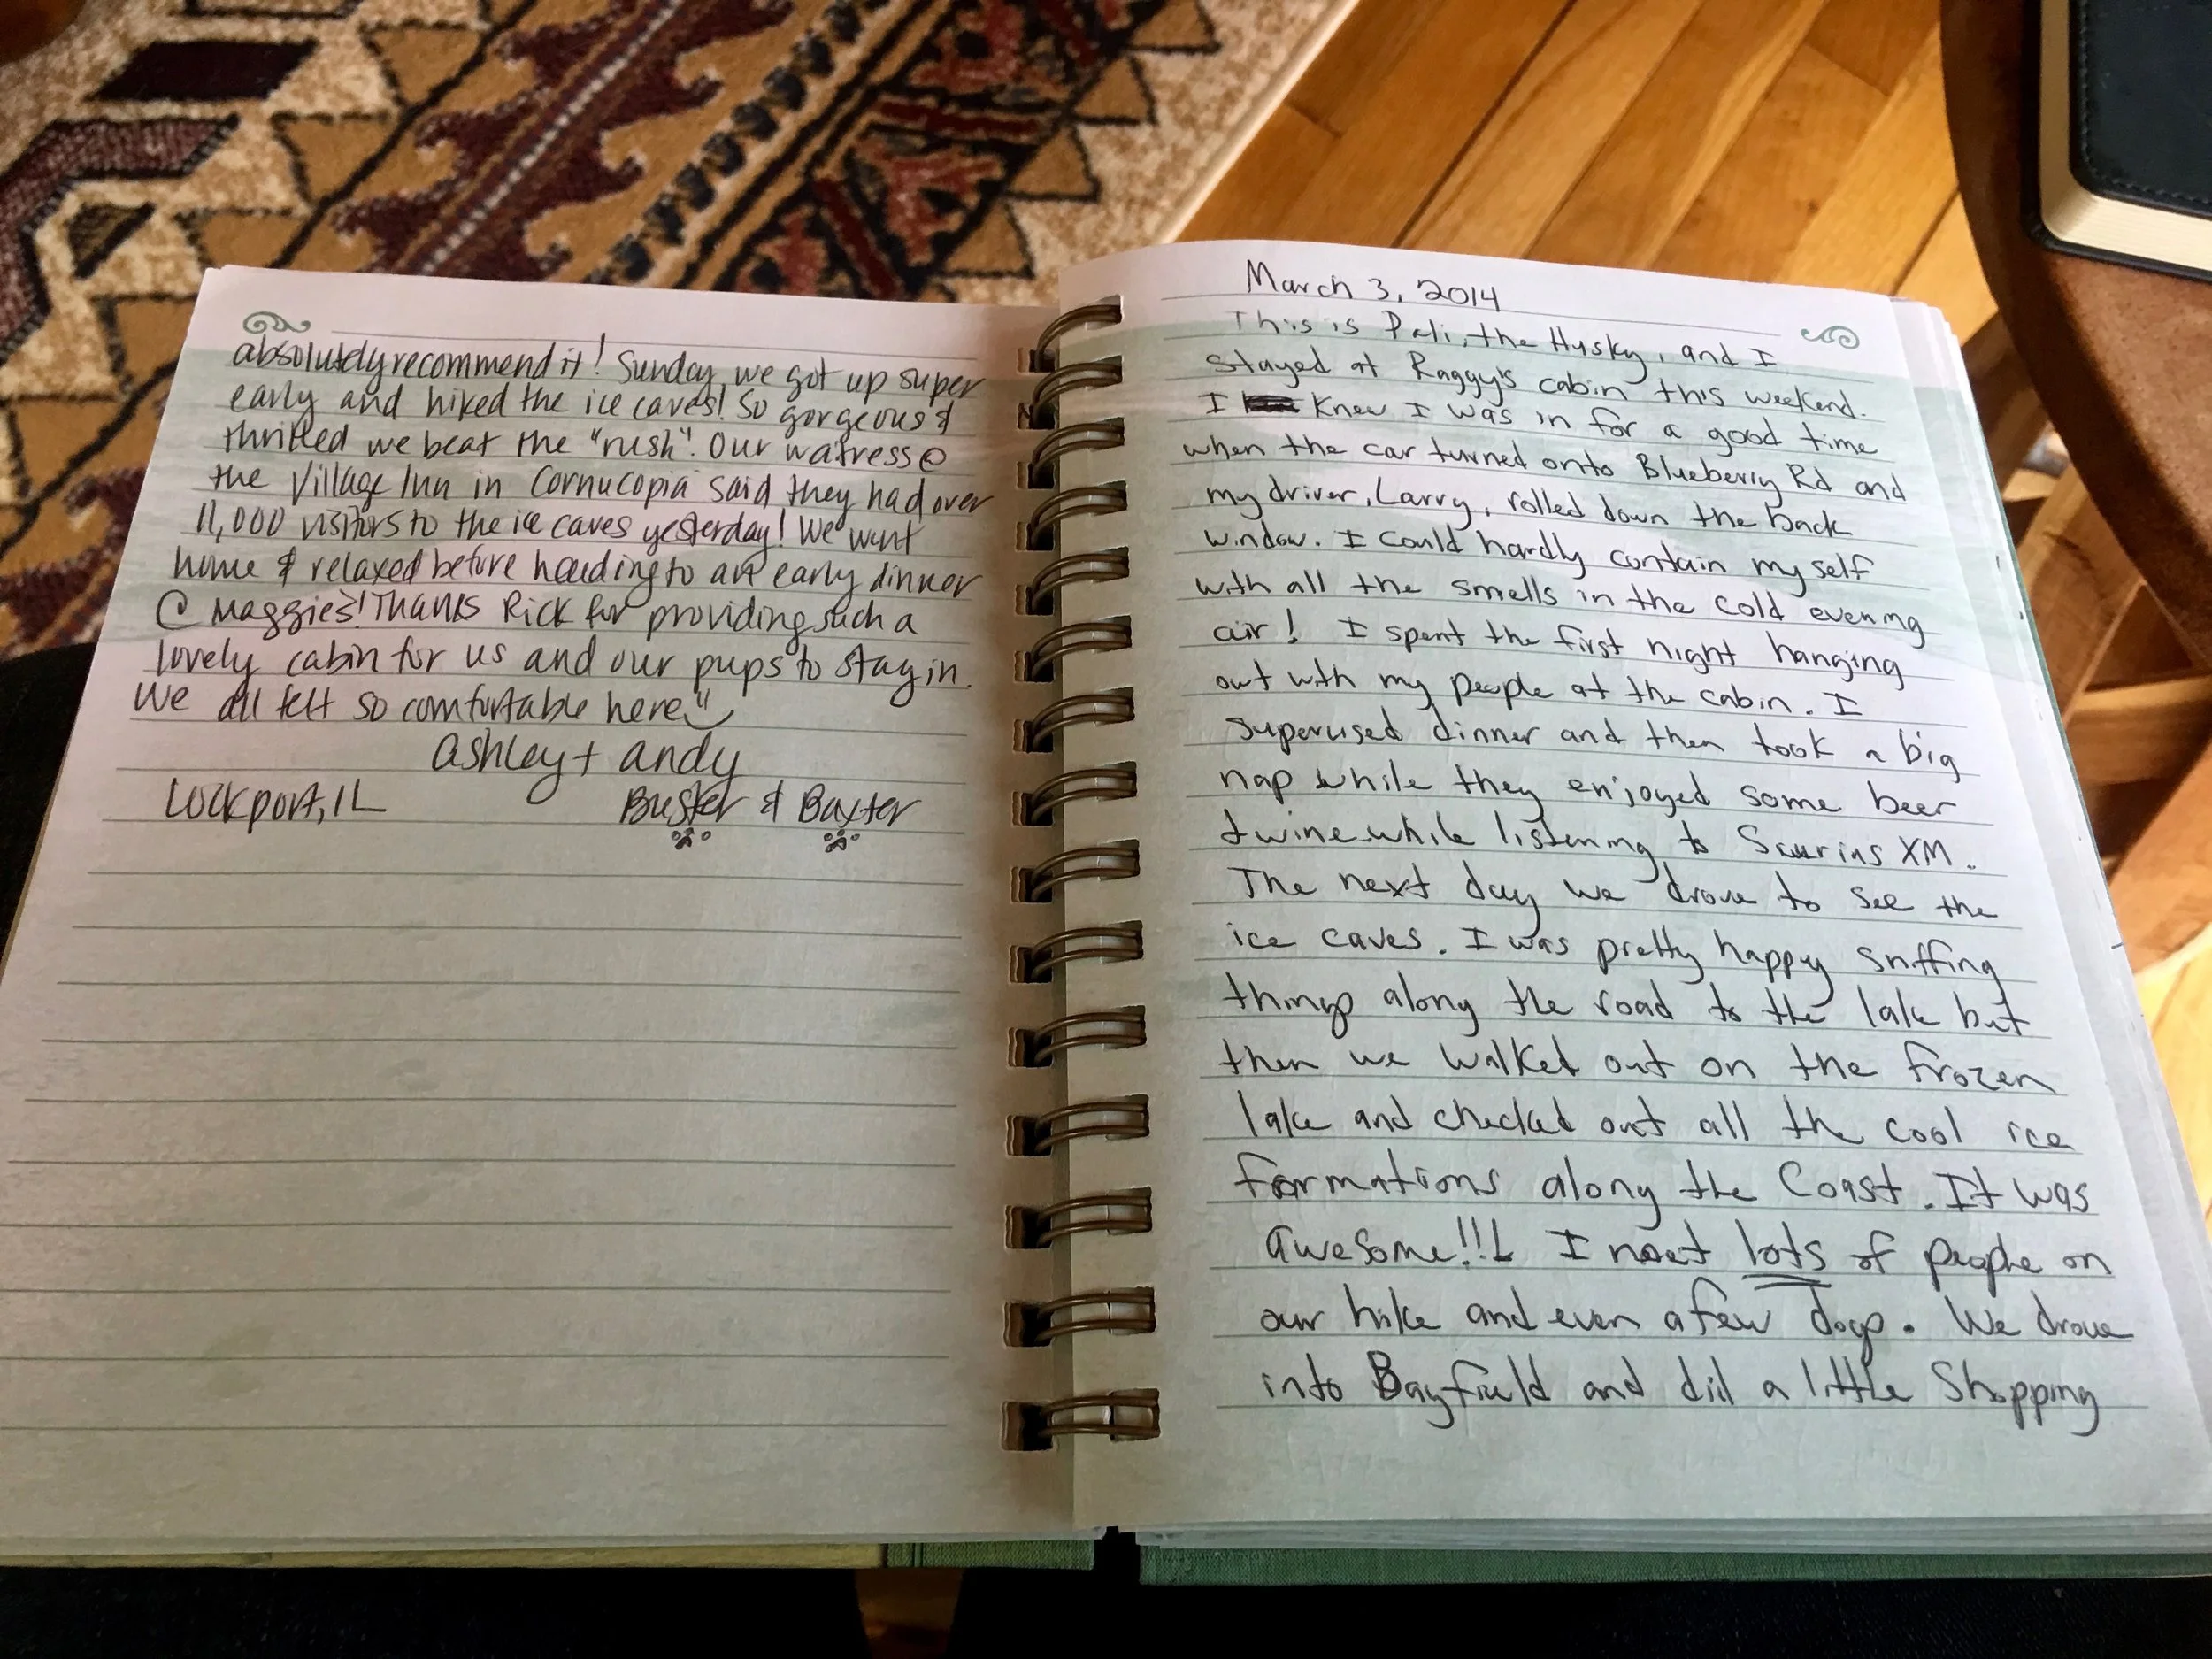 absolutely recommend it! Sunday, we got up super
early and hiked the ice caves! So gorgeous &
thrilled we beat the "rush". Our watress @
the Village Inn in Cornucopia said they had over
11,000 visitors to the ice caves yesterday! We went
home & relaxed before heading to an early dinner
@ Maggie's! Thanks Rick for providing such a
lovely cabin for us and our pups to stay in.
We all felt so comfortable here
Ashley + Andy
Lockport, IL Buster & Baxter
March 3, 2014
This is Pali, the Husky, and I
stayed at Raggy's cabin this weekend.
I Knew I was in for a good time
when the car turned onto Blueberry Rd and
my driver, Larry, rolled down the back
window. I could hardly contain my self
with all the smells in the cold evening
air! I spent the first night hanging
out with my people at the cabin. I
supervised dinner and then took a big
nap while they enjoyed some beer
& wine while listening to XM.
The next day we drove to see the
ice caves. I was pretty happy sniffing
things along the road to the lake but
then we walked out on the frozen
lake and checked out all the cool ice
formations along the Coast. It was
awesome!!! I meet lots of people on
our hike and even a few dogs. We drove
into Bayfield and did a little Shopping